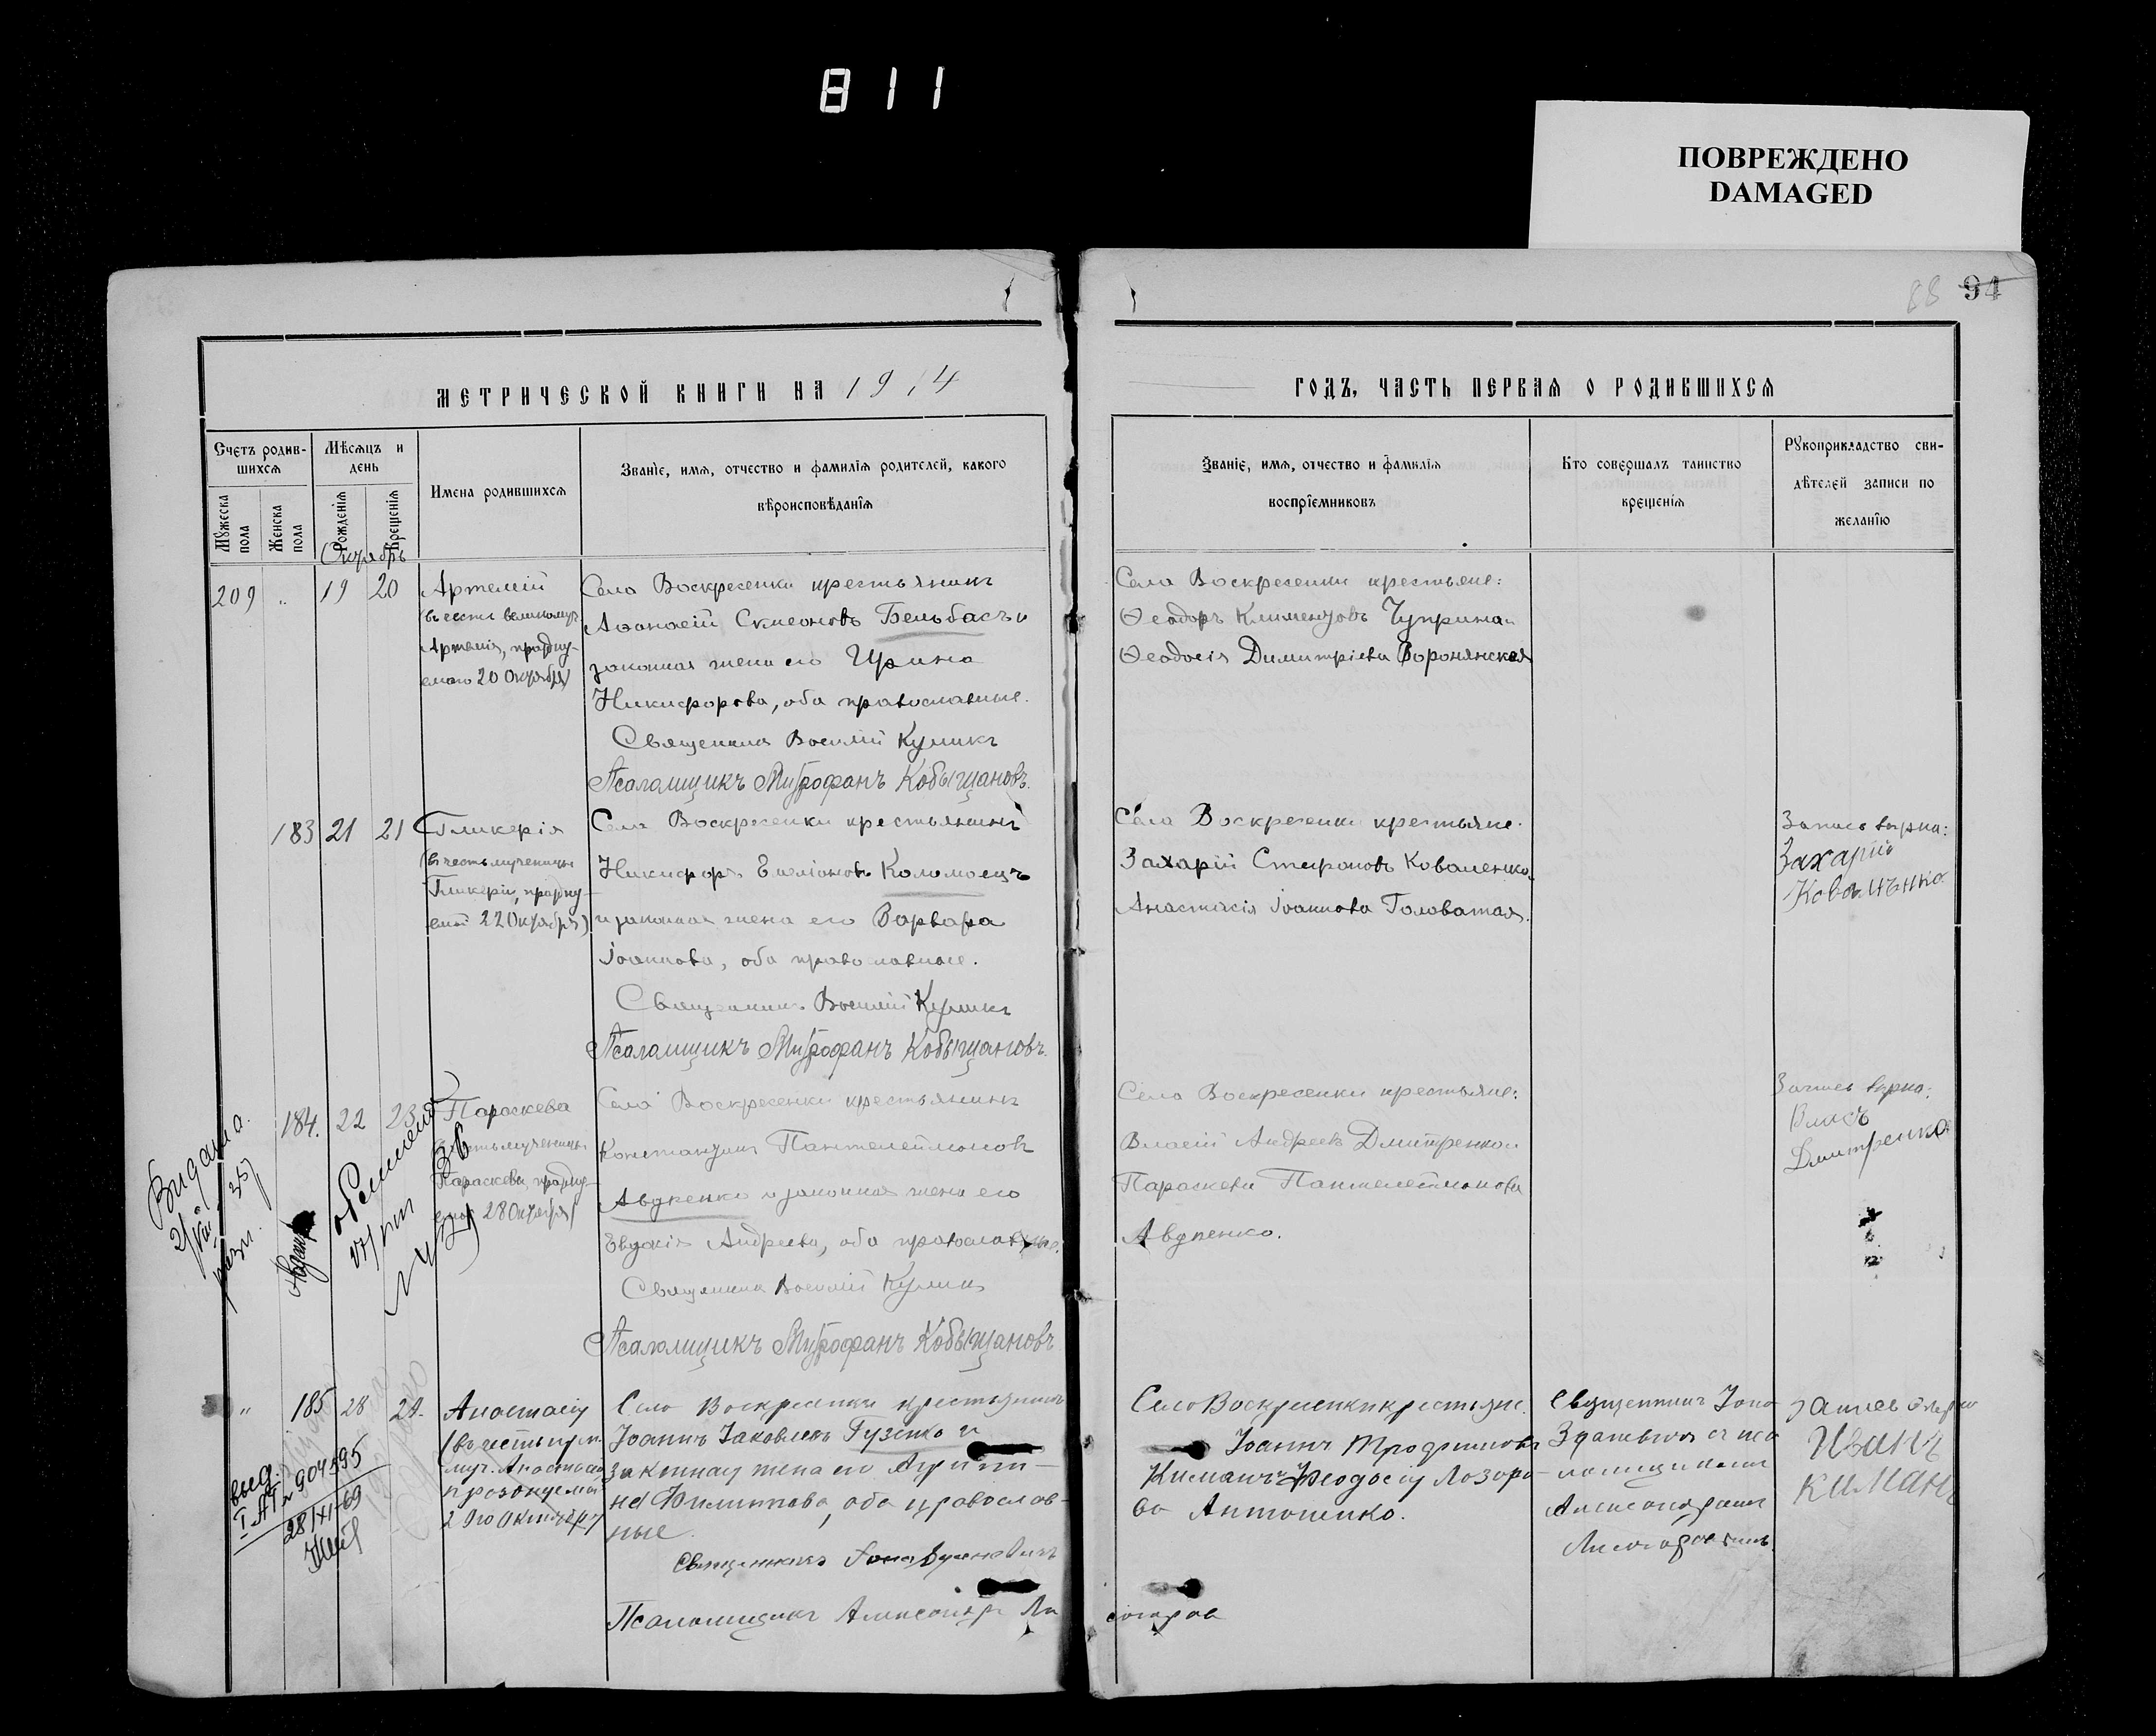 811
ПОВРЕЖДЕНО
DAMAGED
88 94
МЕТРИЧЕСКОЙ КНИГИ НА 1914
ГОДЪ, ЧАСТЬ ПЕРВАЯ О РОДИВШИХСЯ
Счетъ родив-
шихся
Мѣсяцъ и
день
Мужеска
пола
Женска
пола
Рожденія
Крещенія
Имена родившихся
Званіе, имя, отчество и фамилія родителей, какого
вѣроисповѣданія
Званіе, имя, отчество и фамилія
воспріемниковъ
Кто совершалъ таинство
крещенія
Рукоприкладство сви-
дѣтелей записи по
желанію
Октябрь
209 „ 19 20
Артемій
(въ честь великомуч.
Артемія, праздну-
емаго 20 Октября)
Села Воскресенки крестьянинъ
Аѳанасій Симеоновъ Бельбасъ и
законная жена его Ирина
Никифорова, оба православные.
Священникъ Василій Куликъ
Псаломщикъ Митрофанъ Кобыщановъ.
Села Воскресенки крестьяне:
Ѳеодоръ Климентовъ Чуприна и
Ѳеодосія Димитріева Воронянская
183 21 21
Гликерія
(въ честь мученицы
Гликеріи, праздну-
емой 22 Октября)
Села Воскресенки крестьянинъ
Никифоръ Коломоецъ
и законная жена его Варвара
Іоаннова, оба православные.
Священникъ Василій Куликъ
Псаломщикъ Митрофанъ Кобыщановъ.
Села Воскресенки крестьяне:
Захарій Стефановъ Коваленко и
Анастасія Іоаннова Головатая.
Запись вѣрна:
Захарій
Ковалѣнко
184. 22 23
Параскева
честь мученицы
Параскевы, праздну-
емой 28 Октября)
Села Воскресенки крестьянинъ
Константинъ Пантелеймоновъ
Авдѣенко и законная жена его
Евдокія Андреева, оба православные.
Священникъ Василій Куликъ
Псаломщикъ Митрофанъ Кобыщановъ
Села Воскресенки крестьяне:
Власій Андреевъ Дмитренко и
Параскева Пантелеймонова
Авдѣенко.
Запись вѣрна:
Власъ
Дмитренко
Видана
„ 185 28 29.
Анастасія
(въ честь прп.
муч. Анастасіи
празднуемой
29го Октября)
Село Воскресенки крестьянинъ
Іоаннъ Іаковлевъ Гузенко и
законная жена его Агрипи-
на Филиппова, оба православ-
ные.
Священникъ Іона
Псаломщикъ Александръ
Село Воскресенки крестьяне:
Іоаннъ Трофимовъ
Киманъ и Ѳеодосія Лазаре-
ва Антоненко.
Священникъ Іона
съ пса-
ломщикомъ
Александромъ
Запись вѣрна
Иванъ
Киманъ
выд.
I АП № 904595
28/XI-69